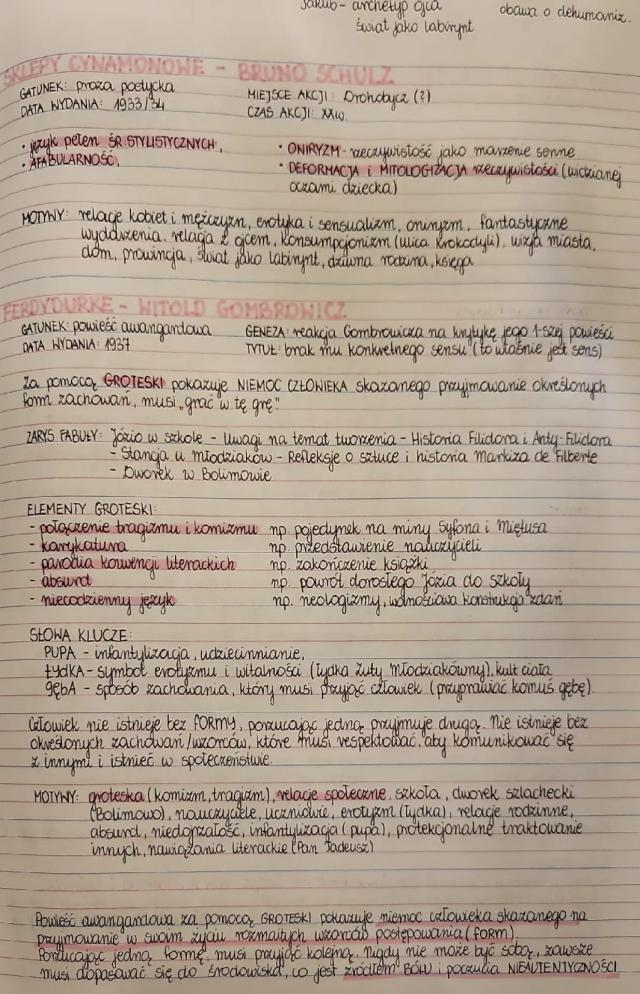 Jakub - archetyp ojca
obawa o dehumaniz.
świat jako labirynt
SKLEPY CYNAMONOWE - BRUNO SCHULZ
GATUNEK: proza poetycka
MIEJSCE AKCJI: Drohobycz (?)
DATA WYDANIA: 1933/34
CZAS AKCJI: XXw.
• język pełen ŚR. STYLISTYCZNYCH,
• ONIRYZM - rzeczywistość jako marzenie senne
• AFABULARNOŚĆ,
• DEFORMACJA i MITOLOGIZACJA rzeczywistości (widzianej
oczami dziecka)
MOTYWY: relacje kobiet i mężczyzn, erotyka i sensualizm, oniryzm, fantastyczne
wydarzenia, relacja z ojcem, konsumpcjonizm (ulica Krokodyli), wizja miasta,
dom, prowincja, świat jako labirynt, dziwna rodzina, księga
FERDYDURKE - WITOLD GOMBROWICZ
GATUNEK: powieść awangardowa
GENEZA: reakcja Gombrowicza na krytykę jego 1-szej powieści
DATA WYDANIA: 1937
TYTUŁ: brak mu konkretnego sensu (to właśnie jest sens)
Za pomocą GROTESKI pokazuje NIEMOC CZŁOWIEKA skazanego przyjmowanie określonych
form zachowań, musi „grać w tę grę".
ZARYS FABUŁY: Józio w szkole - Uwagi na temat tworzenia - Historia Filidora i Anty-Filidora
- Stancja u Młodziaków - Refleksje o sztuce i historia Markiza de Filberte
- Dworek w Bolimowie
ELEMENTY GROTESKI:
- połączenie tragizmu i komizmu np. pojedynek na miny Syfona i Miętusa
- karykatura np. przedstawienie nauczycieli
- parodia konwencji literackich np. zakończenie książki
- absurd np. powrót dorosłego Józia do szkoły
- niecodzienny język np. neologizmy, wolnościowa konstrukcja zdań
SŁOWA KLUCZE:
PUPA - infantylizacja, udziecinnianie,
ŁYDKA - symbol erotyzmu i witalności (łydka Zuty Młodziakówny), kult ciała
GĘBA - sposób zachowania, który musi przyjąć człowiek (przyprawiać komuś gębę).
Człowiek nie istnieje bez FORMY, porzucając jedną przyjmuje drugą. Nie istnieje bez
określonych zachowań/wzorców, które musi respektować, aby komunikować się
z innymi i istnieć w społeczeństwie.
MOTYWY: groteska (komizm, tragizm), relacje społeczne, szkoła, dworek szlachecki
(Bolimowo), nauczyciele, uczniowie, erotyzm (łydka), relacje rodzinne,
absurd, niedojrzałość, infantylizacja (pupa), protekcjonalne traktowanie
innych, nawiązania literackie (Pan Tadeusz)
Powieść awangardowa za pomocą GROTESKI pokazuje niemoc człowieka skazanego na
przyjmowanie w swoim życiu rozmaitych wzorców postępowania (FORM).
Porzucając jedną formę, musi przyjąć kolejną. Nigdy nie może być sobą, zawsze
musi dopasować się do środowiska, co jest źródłem BÓLU i poczucia NIEAUTENTYCZNOŚCI.